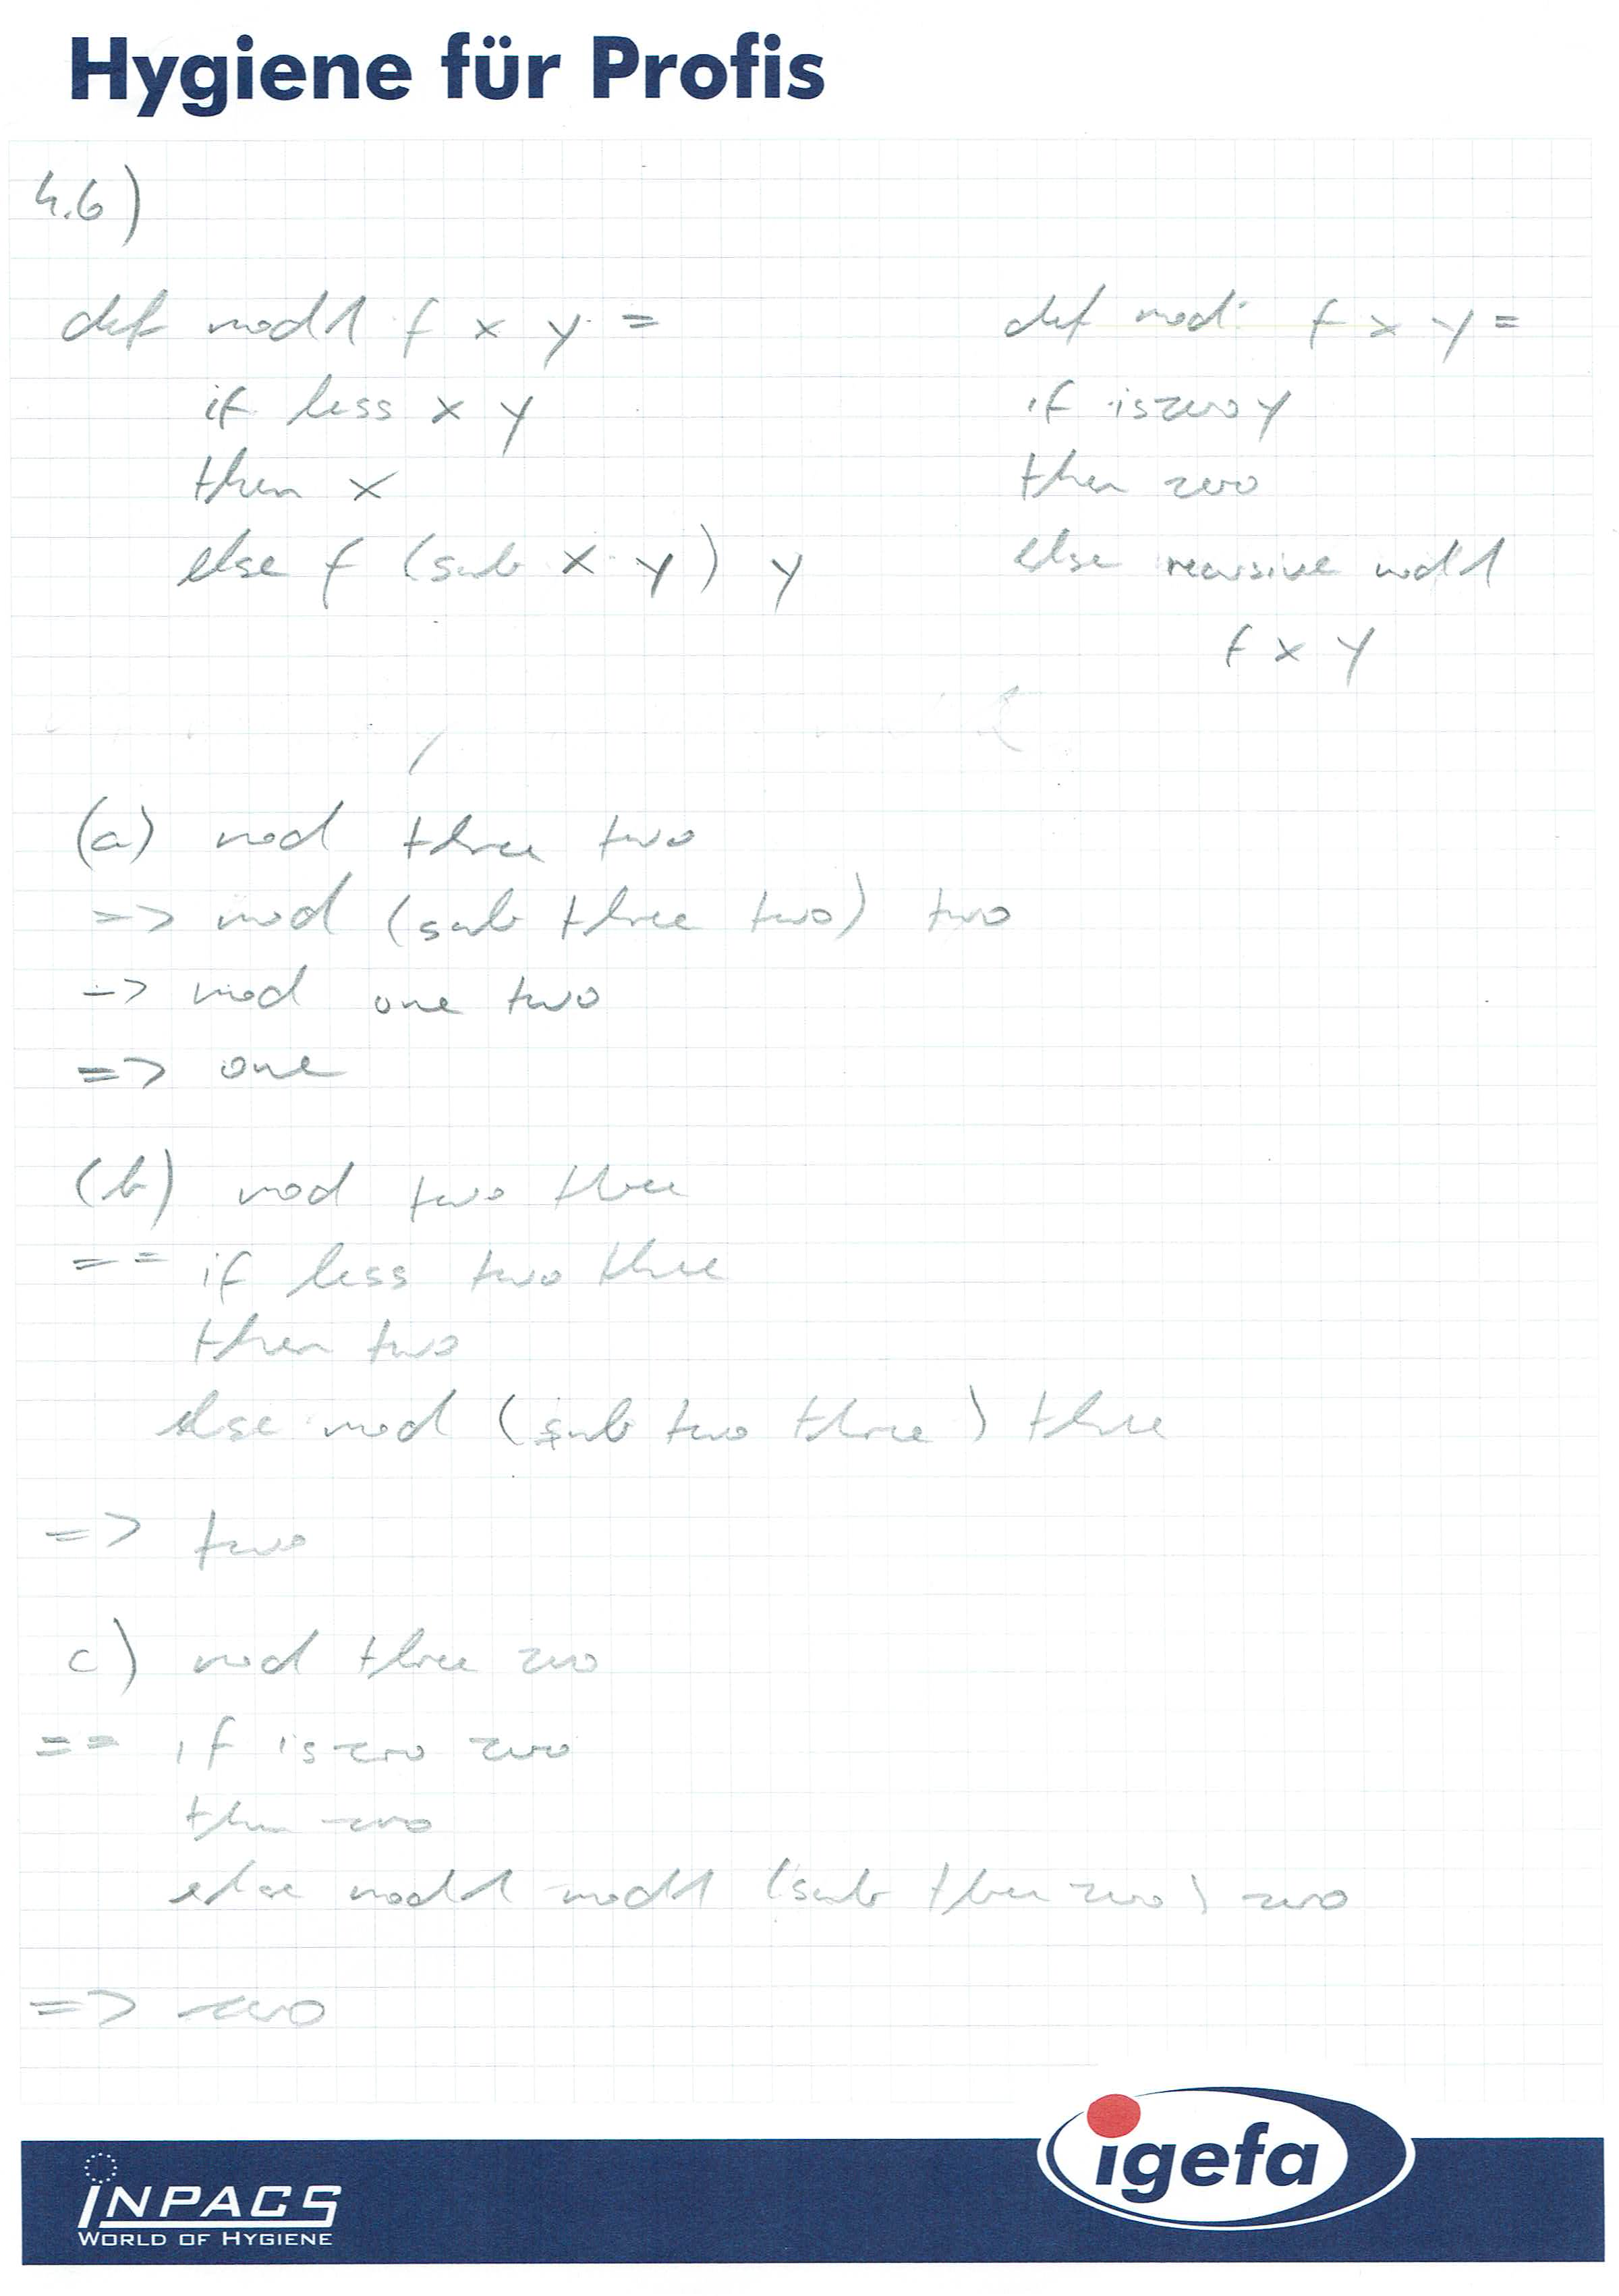 Hygiene für Profis
4.6)
def mod1 f x y =
if less x y
then x
else f (sub x y) y
def mod f x y =
if iszero y
then zero
else recursive mod1
f x y
(a) mod three two
=> mod (sub three two) two
-> mod one two
=> one
(b) mod two three
== if less two three
then two
else mod (sub two three) three
=> two
c) mod three zero
== if iszero zero
then zero
else mod1 mod1 (sub three zero) zero
=> zero
INPACS
WORLD OF HYGIENE
igefa